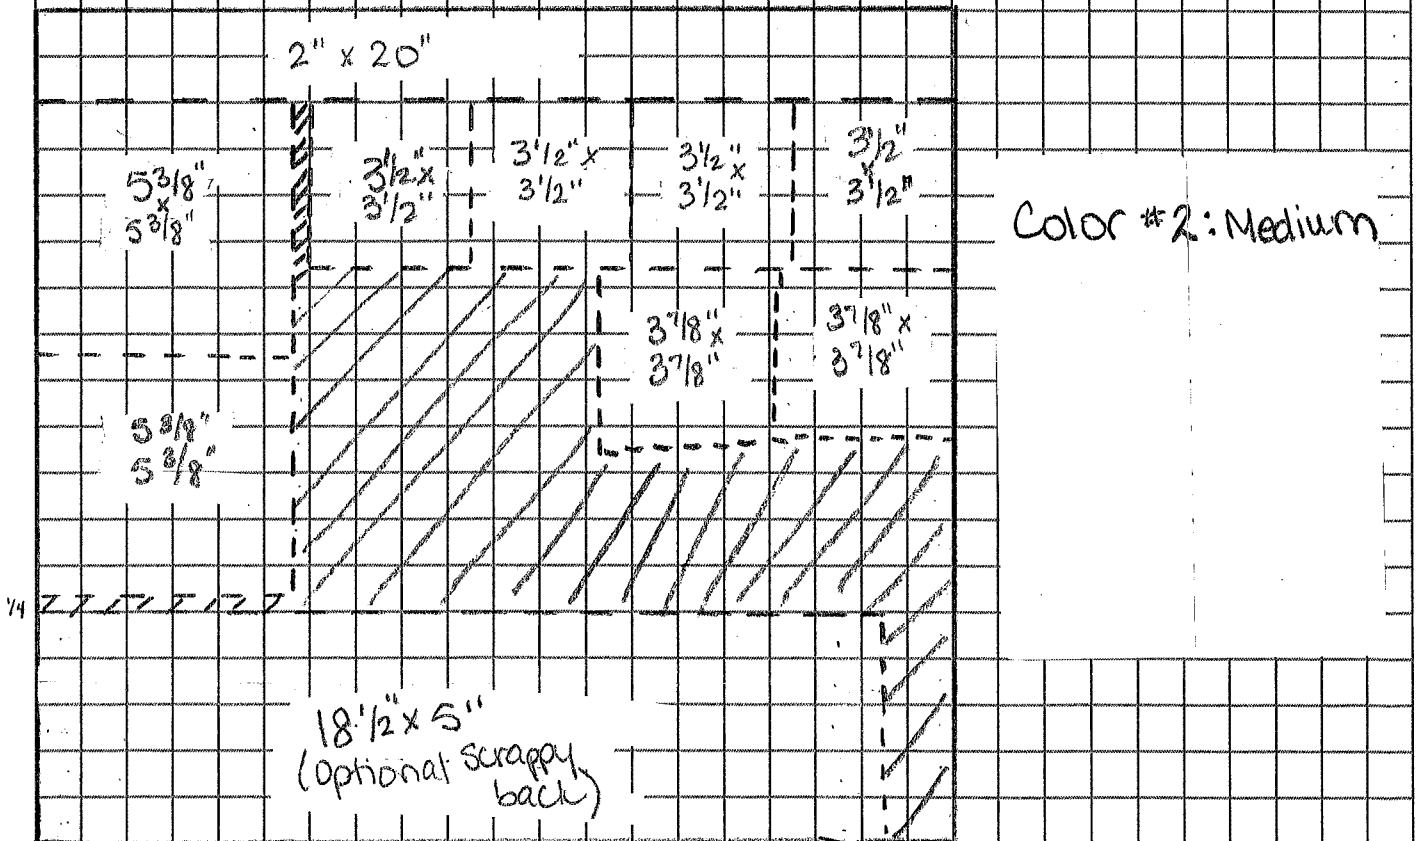 2" x 20"
5 3/8"
x
5 3/8"
3 1/2" x
3 1/2"
3 1/2" x
3 1/2"
3 1/2"
x
3 1/2"
3 1/2"
x
3 1/2"
Color #2: Medium
3 7/8" x
3 7/8"
3 7/8" x
3 7/8"
5 3/8"
5 3/8"
1/4
18 1/2" x 5"
(optional scrappy
back)